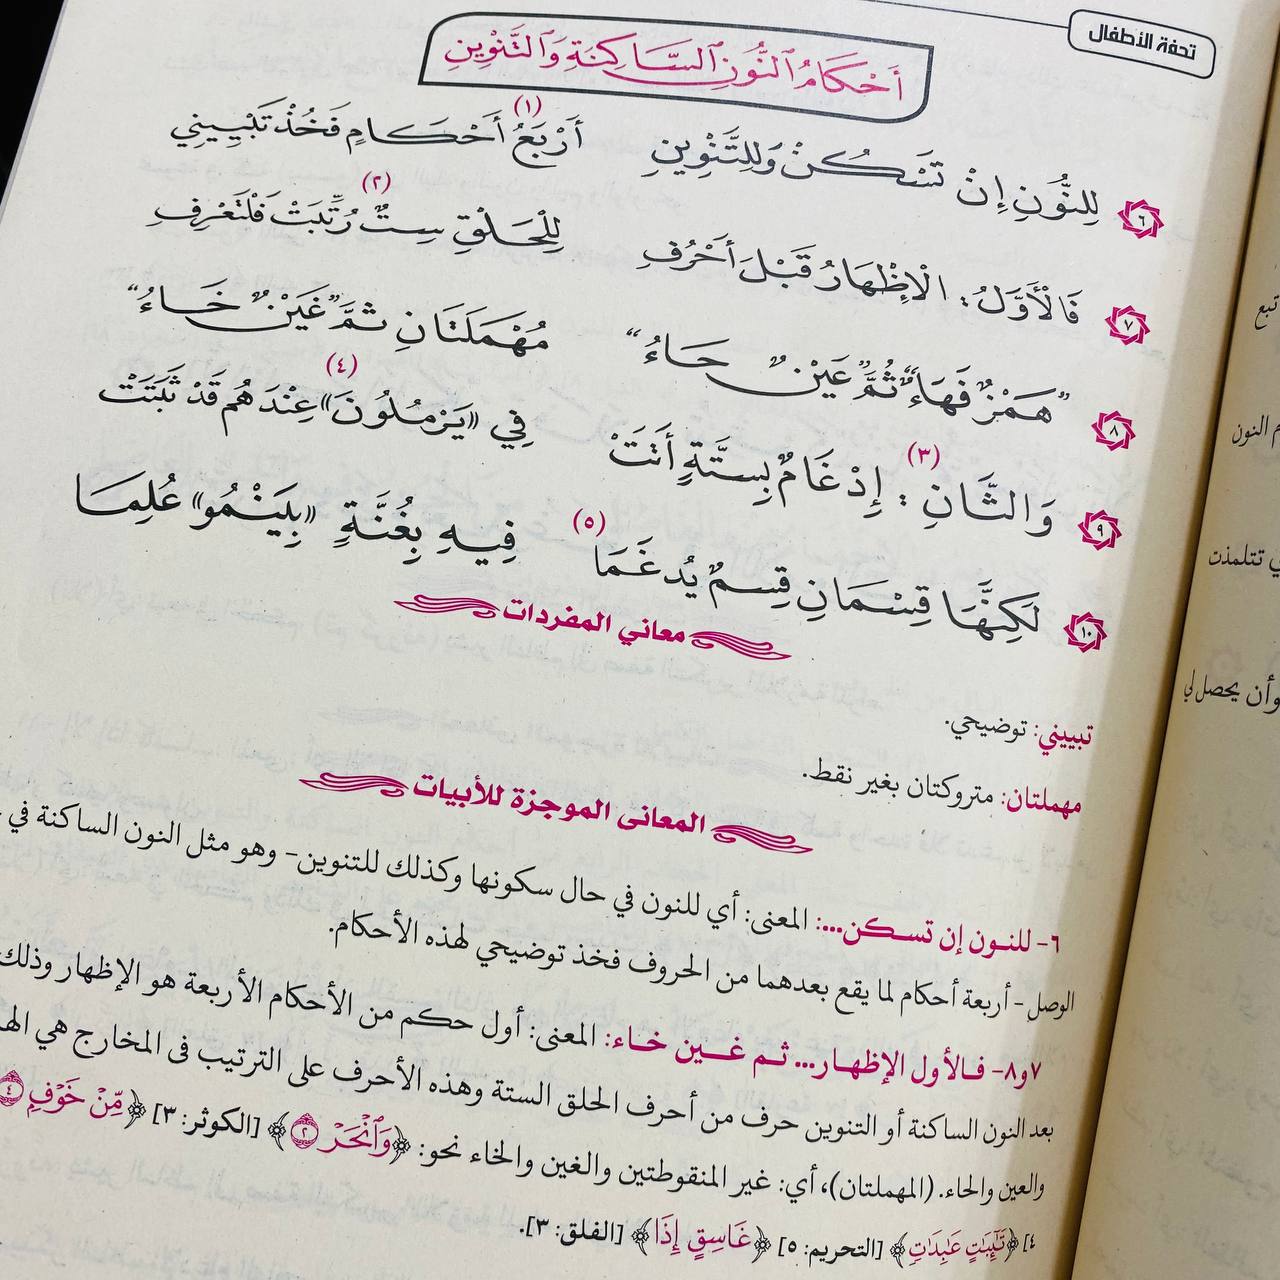 تحفة الأطفال
أَحْكَامُ ٱلنُّونِ ٱلسَّاكِنَةِ وَٱلتَّنْوِينِ
٦ لِلنُّونِ إِنْ تَسْكُنْ وَلِلتَّنْوِينِ أَرْبَعُ (١) أَحْكَامٍ فَخُذْ تَبْيِينِي
٧ فَالْأَوَّلُ: الْإِظْهَارُ قَبْلَ أَحْرُفِ لِلْحَلْقِ سِتٌّ (٢) رُتِّبَتْ فَلْتَعْرِفِ
٨ "هَمْزٌ فَهَاءٌ" ثُمَّ "عَيْنٌ حَاءُ" مُهْمَلَتَانِ ثُمَّ "غَيْنٌ خَاءُ"
٩ وَالثَّانِ: إِدْغَامٌ (٣) بِسِتَّةٍ أَتَتْ فِي «يَرْمُلُونَ» (٤) عِنْدَهُمْ قَدْ ثَبَتَتْ
١٠ لَكِنَّهَا قِسْمَانِ قِسْمٌ يُدْغَمَا (٥) فِيهِ بِغُنَّةٍ «بِيَنْمُو» عُلِمَا
معاني المفردات
تبييني: توضيحي.
مهملتان: متروكتان بغير نقط.
المعانى الموجزة للأبيات
٦- للنون إن تسكن...: المعنى: أي للنون في حال سكونها وكذلك للتنوين- وهو مثل النون الساكنة في
الوصل- أربعة أحكام لما يقع بعدهما من الحروف فخذ توضيحي لهذه الأحكام.
٧و٨- فالأول الإظهار... ثم غين خاء: المعنى: أول حكم من الأحكام الأربعة هو الإظهار وذلك
بعد النون الساكنة أو التنوين حرف من أحرف الحلق الستة وهذه الأحرف على الترتيب فى المخارج هي
والعين والحاء. (المهملتان)، أي: غير المنقوطتين والغين والخاء نحو: ﴿وَٱنْحَرْ ٢﴾ [الكوثر: ٣] ﴿مِّنْ خَوْفٍ ٤
٤] ﴿تَٰٓئِبَٰتٍ عَٰبِدَٰتٍ﴾ [التحريم: ٥] ﴿غَاسِقٍ إِذَا﴾ [الفلق: ٣].
تبع
م النون
ي تتلمذت
وأن يحصل لي